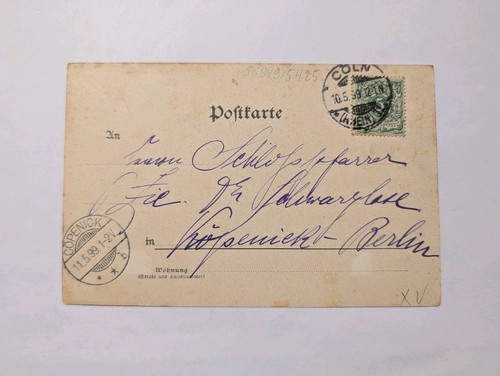 CÖLN
10.5.99.12-1N
(RHEIN)
Postkarte
An
Herrn Schlosspfarrer
Lic. Dr. Schwarzlose
in Köpenick-Berlin
CÖPENICK
11.5.99.1-2N
Wohnung
(Straße und Hausnummer)
X V